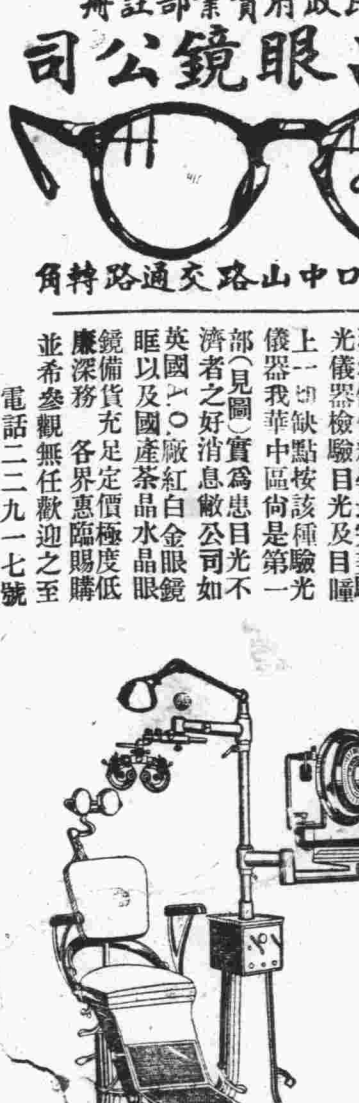 政府實業部註冊
眼鏡公司
口中山路交通路轉角
光儀器檢驗目光及目瞳
上一切缺點按該種驗光
儀器我華中區尙是第一
部(見圖)實爲患目光不
濟者之好消息敝公司如
英國AO廠紅白金眼鏡
眶以及國產茶晶水晶眼
鏡備貨充足定價極度低
廉深務 各界惠臨賜購
並希參觀無任歡迎之至
電話二二九一七號